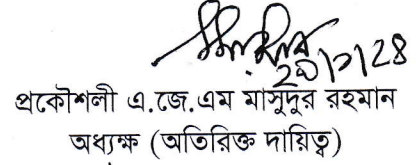 প্রকৌশলী এ.জে.এম মাসুদুর রহমান
অধ্যক্ষ (অতিরিক্ত দায়িত্ব)